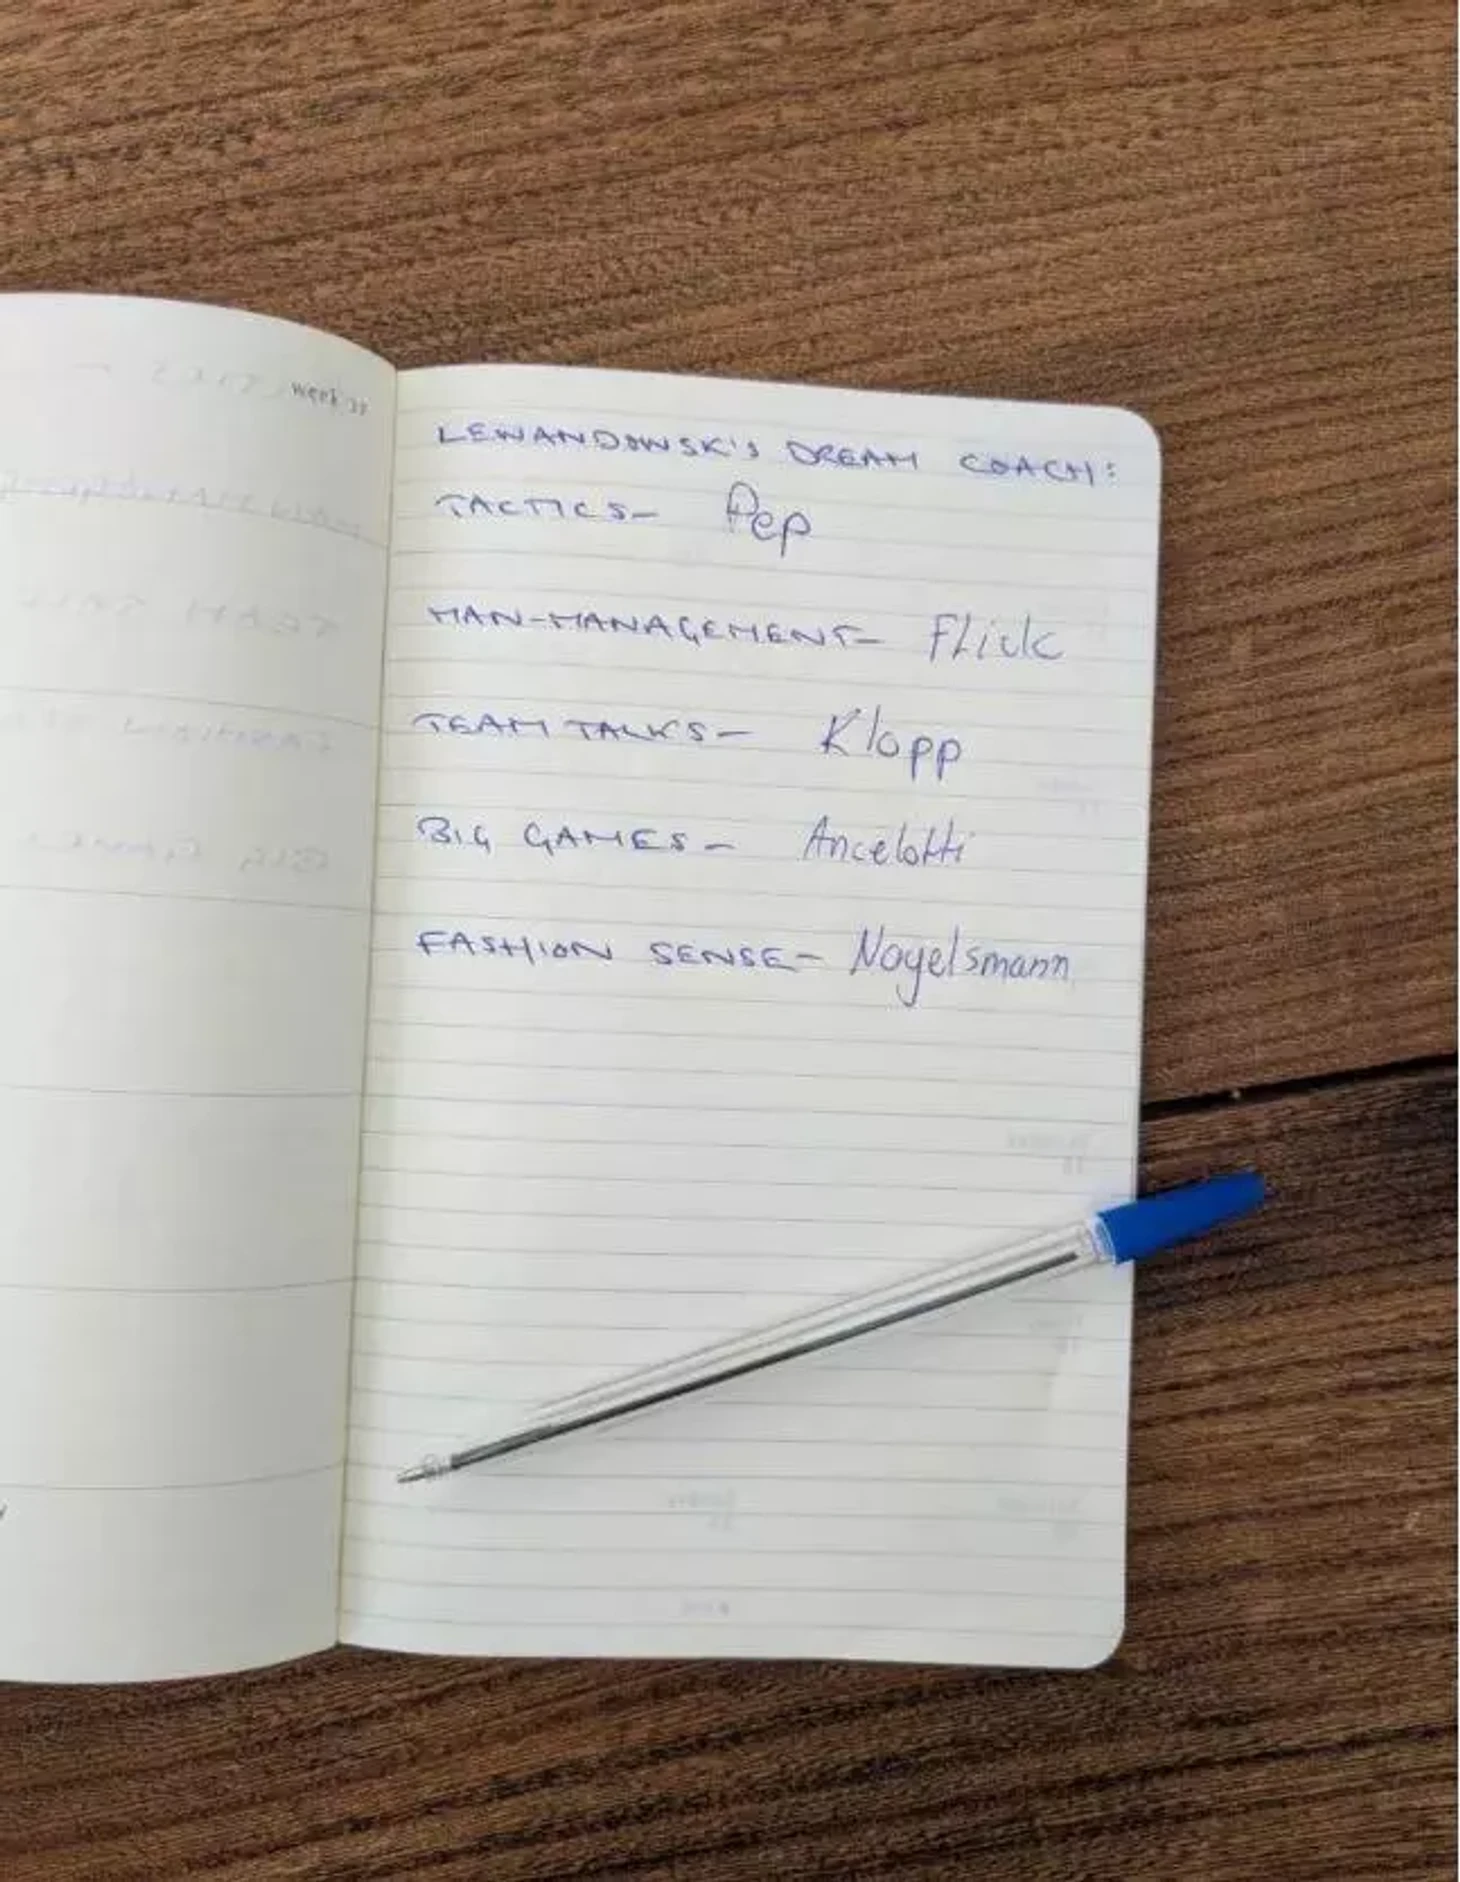 week
LEWANDOWSK'S DREAM COACH:
TACTICS- Pep
MAN-MANAGEMENT- FLick
TEAM TALKS- Klopp
BIG GAMES- Ancelotti
FASHION SENSE- Nagelsmann